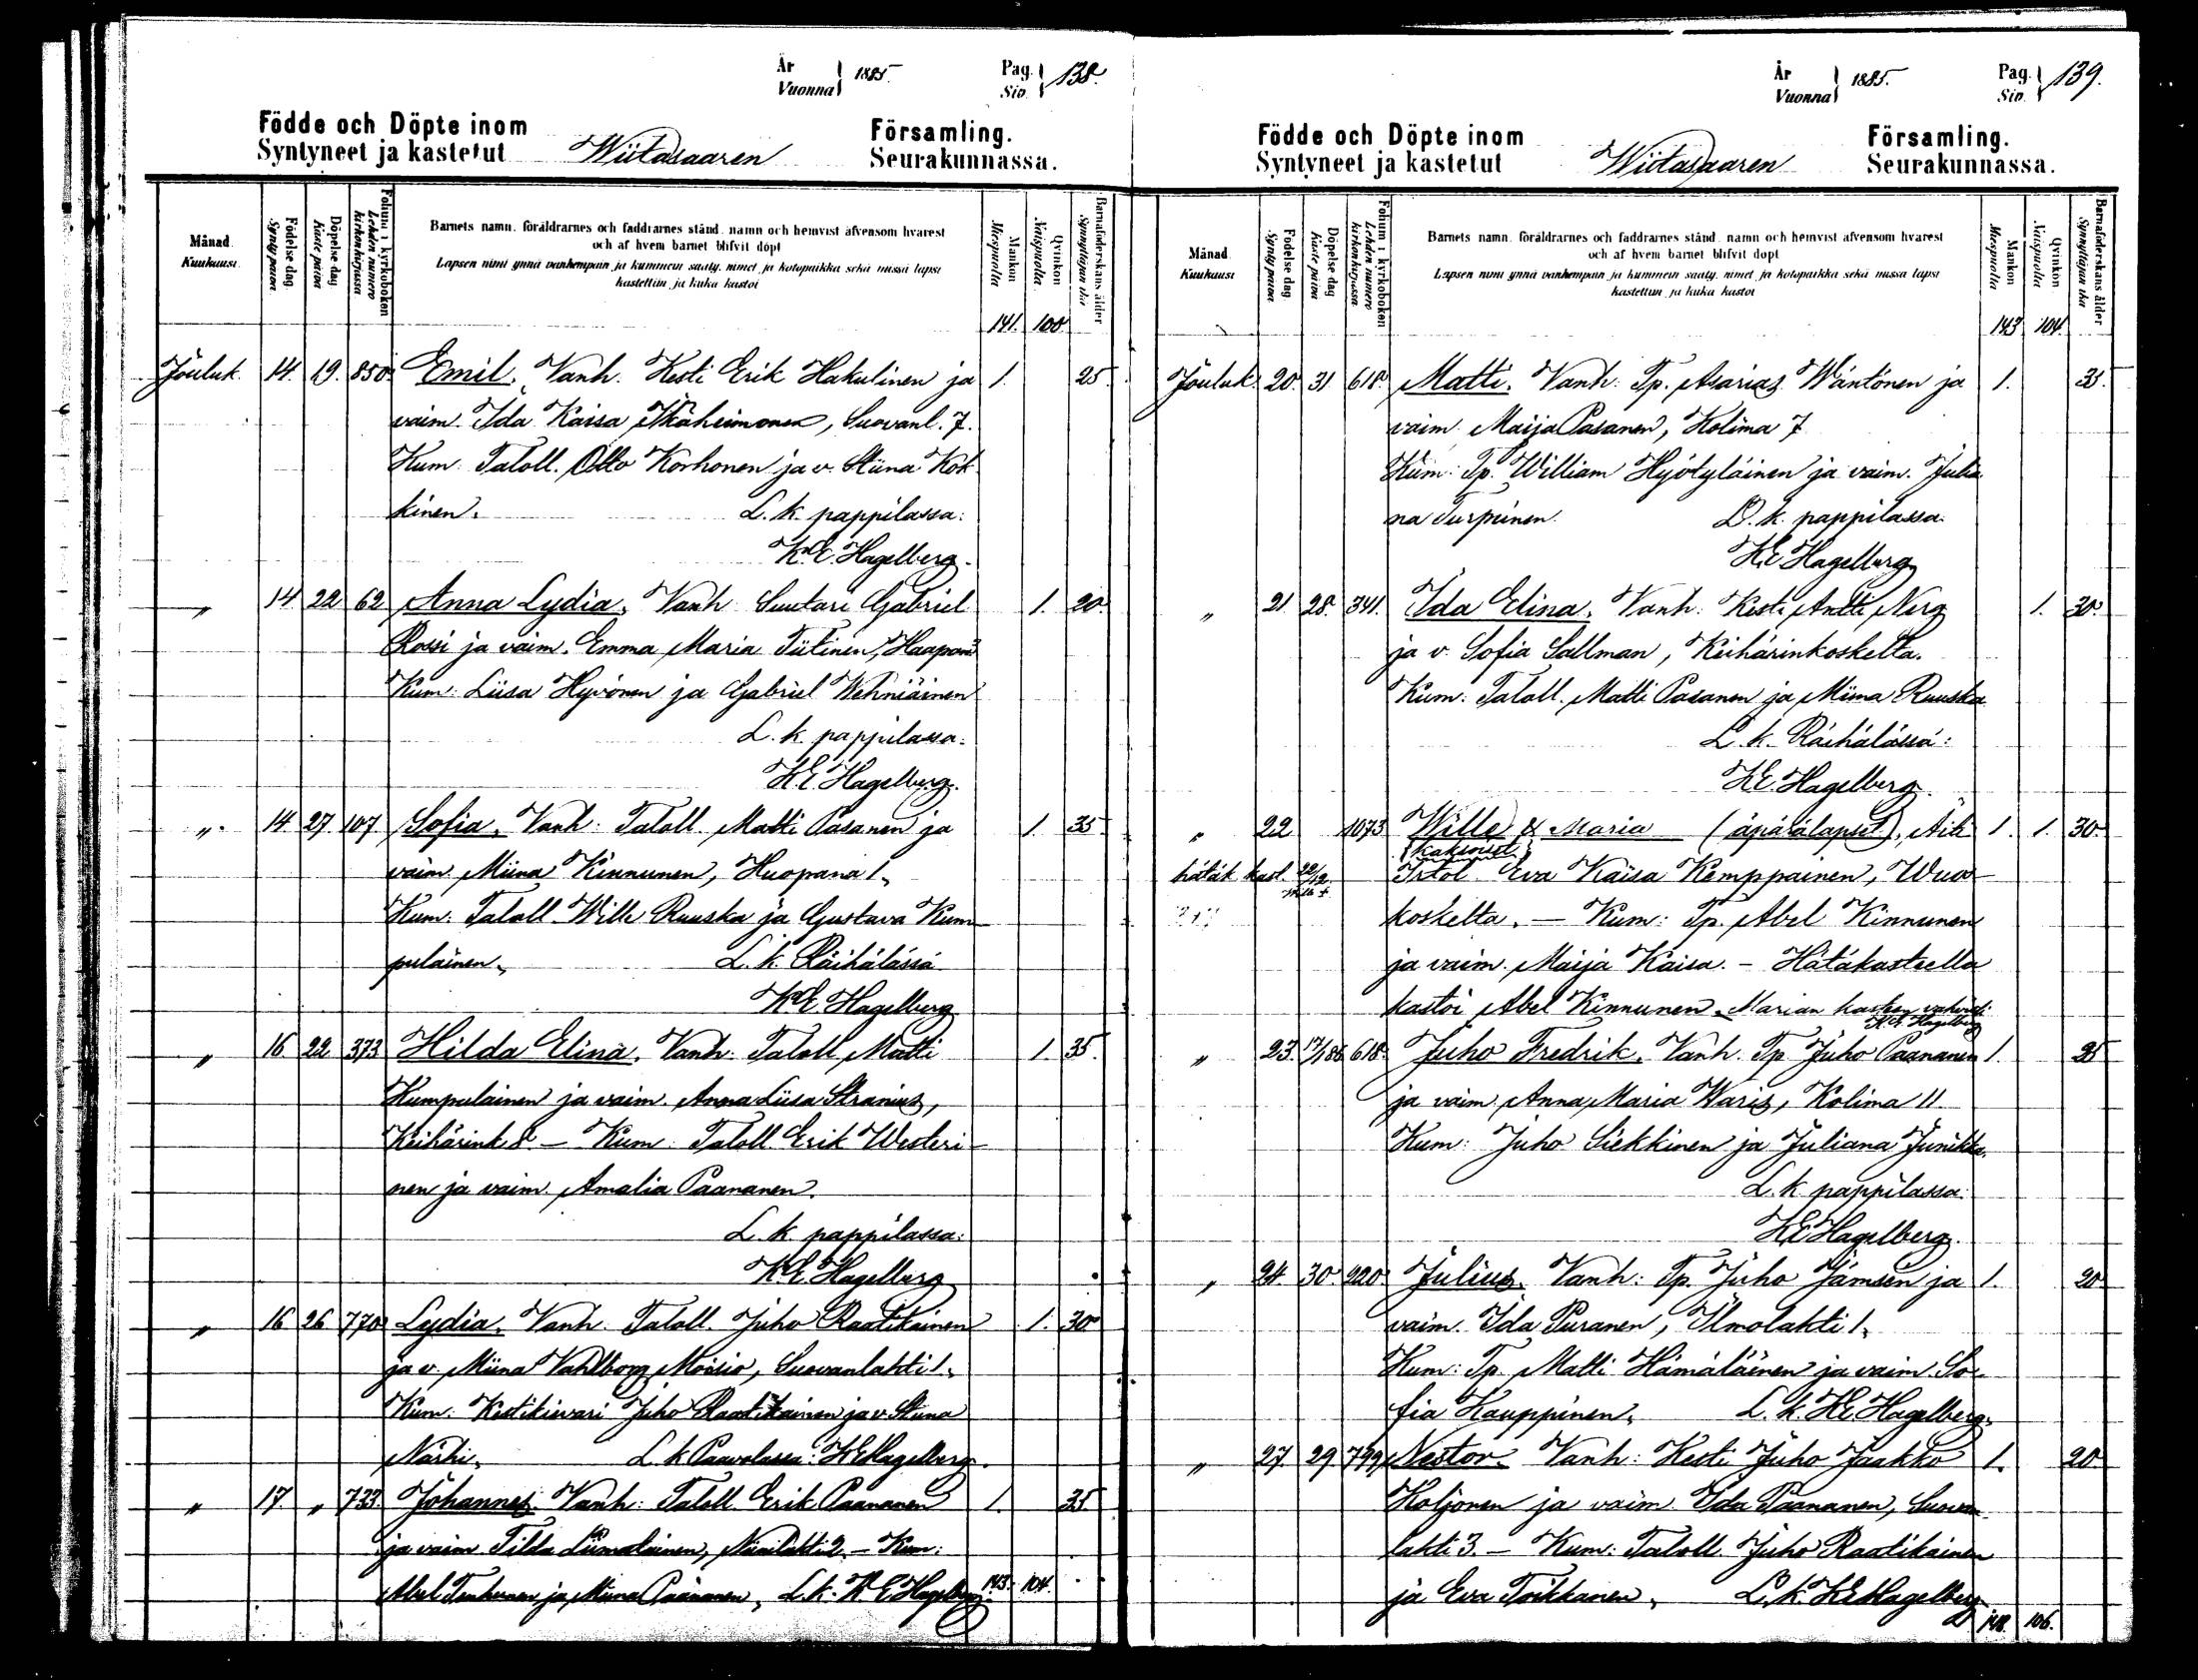 År
Vuonna } 1885.
Pag.
Siv. } 138.
Födde och Döpte inom
Syntyneet ja kastetut Wiitasaaren
Församling.
Seurakunnassa.
Månad.
Kuukausi.
Födelse dag
Synty päivä
Döpelse dag
Kaste päivä
Folium i kyrkoboken
Lehden numero kirkonkirjassa
Barnets namn, föräldrarnes och faddrarnes stånd, namn och hemvist äfvensom hvarest
och af hvem barnet blifvit döpt
Lapsen nimi ynnä vanhempain ja kummein sääty, nimet ja kotopaikka sekä missä lapsi
kastettiin ja kuka kastoi
Mankön
Miespuolia
Qvinkön
Naispuolia
Barnaföderskans ålder
Synnyttäjän ikä
141. 100.
Jouluk. 14. 19. 850. Emil. Vanh. Kesti Erik Hakulinen ja 1. 25.
vaim. Ida Kaisa Ikäheimonen, Suovanl. 7.
Kum. Taloll. Otto Korhonen ja v. Stiina Kok
kinen. L. k. pappilassa:
K. E. Hagelberg.
„ 14 22 62 Anna Lydia. Vanh. Suutari Gabriel 1. 20.
Rossi ja vaim. Emma Maria Tiitinen, Haapan.
Kum: Liisa Hyvönen ja Gabriel Wehniäinen
L. k. pappilassa:
K E Hagelberg.
„ 14 27 107 Sofia. Vanh: Taloll. Matti Pasanen ja 1. 35
vaim. Miina Kinnunen, Huopana 1.
Kum: Taloll. Wille Ruuska ja Gustava Kum-
pulainen. L. k. Räihälässä
K E Hagelberg
„ 16 22 373 Hilda Elina. Vanh: Taloll. Matti 1. 35.
Kumpulainen ja vaim. Anna Liisa Stranius,
Keihärink. 8. – Kum: Taloll Erik Westeri-
nen ja vaim. Amalia Paananen.
L. k. pappilassa:
K E Hagelberg
„ 16 26 770 Lydia. Vanh. Taloll. Juho Raatikainen 1. 30
ja v. Miina Vahlborg Moisio, Suovanlahti 1.
Kum: Kestikievari Juho Raatikainen ja v. Stiina
Närhi. L. k. Paavolassa: K E Hagelberg.
„ 17. „ 733. Johannes. Vanh: Taloll. Erik Paananen 1. 35
ja vaim. Tilda Liimatainen, Niinilahti 2. – Kum:
Abel Tenhunen ja Miina Paananen. L. k. K E Hagelberg. 143. 104.
År
Vuonna } 1885.
Pag.
Siv. } 139.
Födde och Döpte inom
Syntyneet ja kastetut Wiitasaaren
Församling.
Seurakunnassa.
Månad
Kuukausi
Födelse dag
Synty päivä
Döpelse dag
Kaste päivä
Folium i kyrkoboken
Lehden numero kirkonkirjassa
Barnets namn, föräldrarnes och faddrarnes stånd, namn och hemvist äfvensom hvarest
och af hvem barnet blifvit döpt
Lapsen nimi ynnä vanhempain ja kummein sääty, nimet ja kotopaikka sekä missä lapsi
kastettiin ja kuka kastoi
Mankön
Miespuolia
Qvinkön
Naispuolia
Barnaföderskans ålder
Synnyttäjän ikä
143 104.
Jouluk. 20. 31 618. Matti. Vanh: Tp. Asarias Wäntönen ja 1. 35.
vaim. Maija Pasanen, Kolima 7
Kum: Tp. William Hyötyläinen ja vaim. Julia-
na Turpeinen. L. k. pappilassa:
K E Hagelberg
„ 21. 28. 341. Ida Elina. Vanh: Kesti Antti Nerg 1. 30.
ja v. Sofia Sallman, Keihärinkoskelta.
Kum: Taloll. Matti Pasanen ja Miina Ruuska
L. k. Räihälässä:
K E Hagelberg.
„ 22 1073 Wille & Maria (äpärälapset), Äiti 1. 1. 30.
(kaksoiset)
hätäk kast. 22/12 Itstol. Eva Kaisa Kemppainen, Wuos-
Wille †
koskelta. – Kum: Tp. Abel Kinnunen
ja vaim. Maija Kaisa. – Hätäkasteella
kastoi Abel Kinnunen. Marian kasteen vahvisti
K. E. Hagelberg
„ 23. 17/1 86 618. Juho Fredrik. Vanh. Tp Juho Paananen 1. 25
ja vaim. Anna Maria Waris, Kolima 11.
Kum: Juho Siekkinen ja Juliana Junikka.
L. k pappilassa:
K E Hagelberg.
„ 24. 30. 220 Julius. Vanh: Tp. Juho Jämsen ja 1. 20
vaim. Ida Puranen, Ilmolahti 1.
Kum: Tp. Matti Hämäläinen ja vaim. So-
fia Kauppinen. L. k. K E Hagelberg.
„ 27. 29 799 Nestor. Vanh: Kesti Juho Jaakko 1. 20
Koljonen ja vaim. Ida Paananen, Suovan-
lahti 3. – Kum: Taloll. Juho Raatikainen
ja Eva Toikkanen. L. k. K E Hagelberg
148. 106.